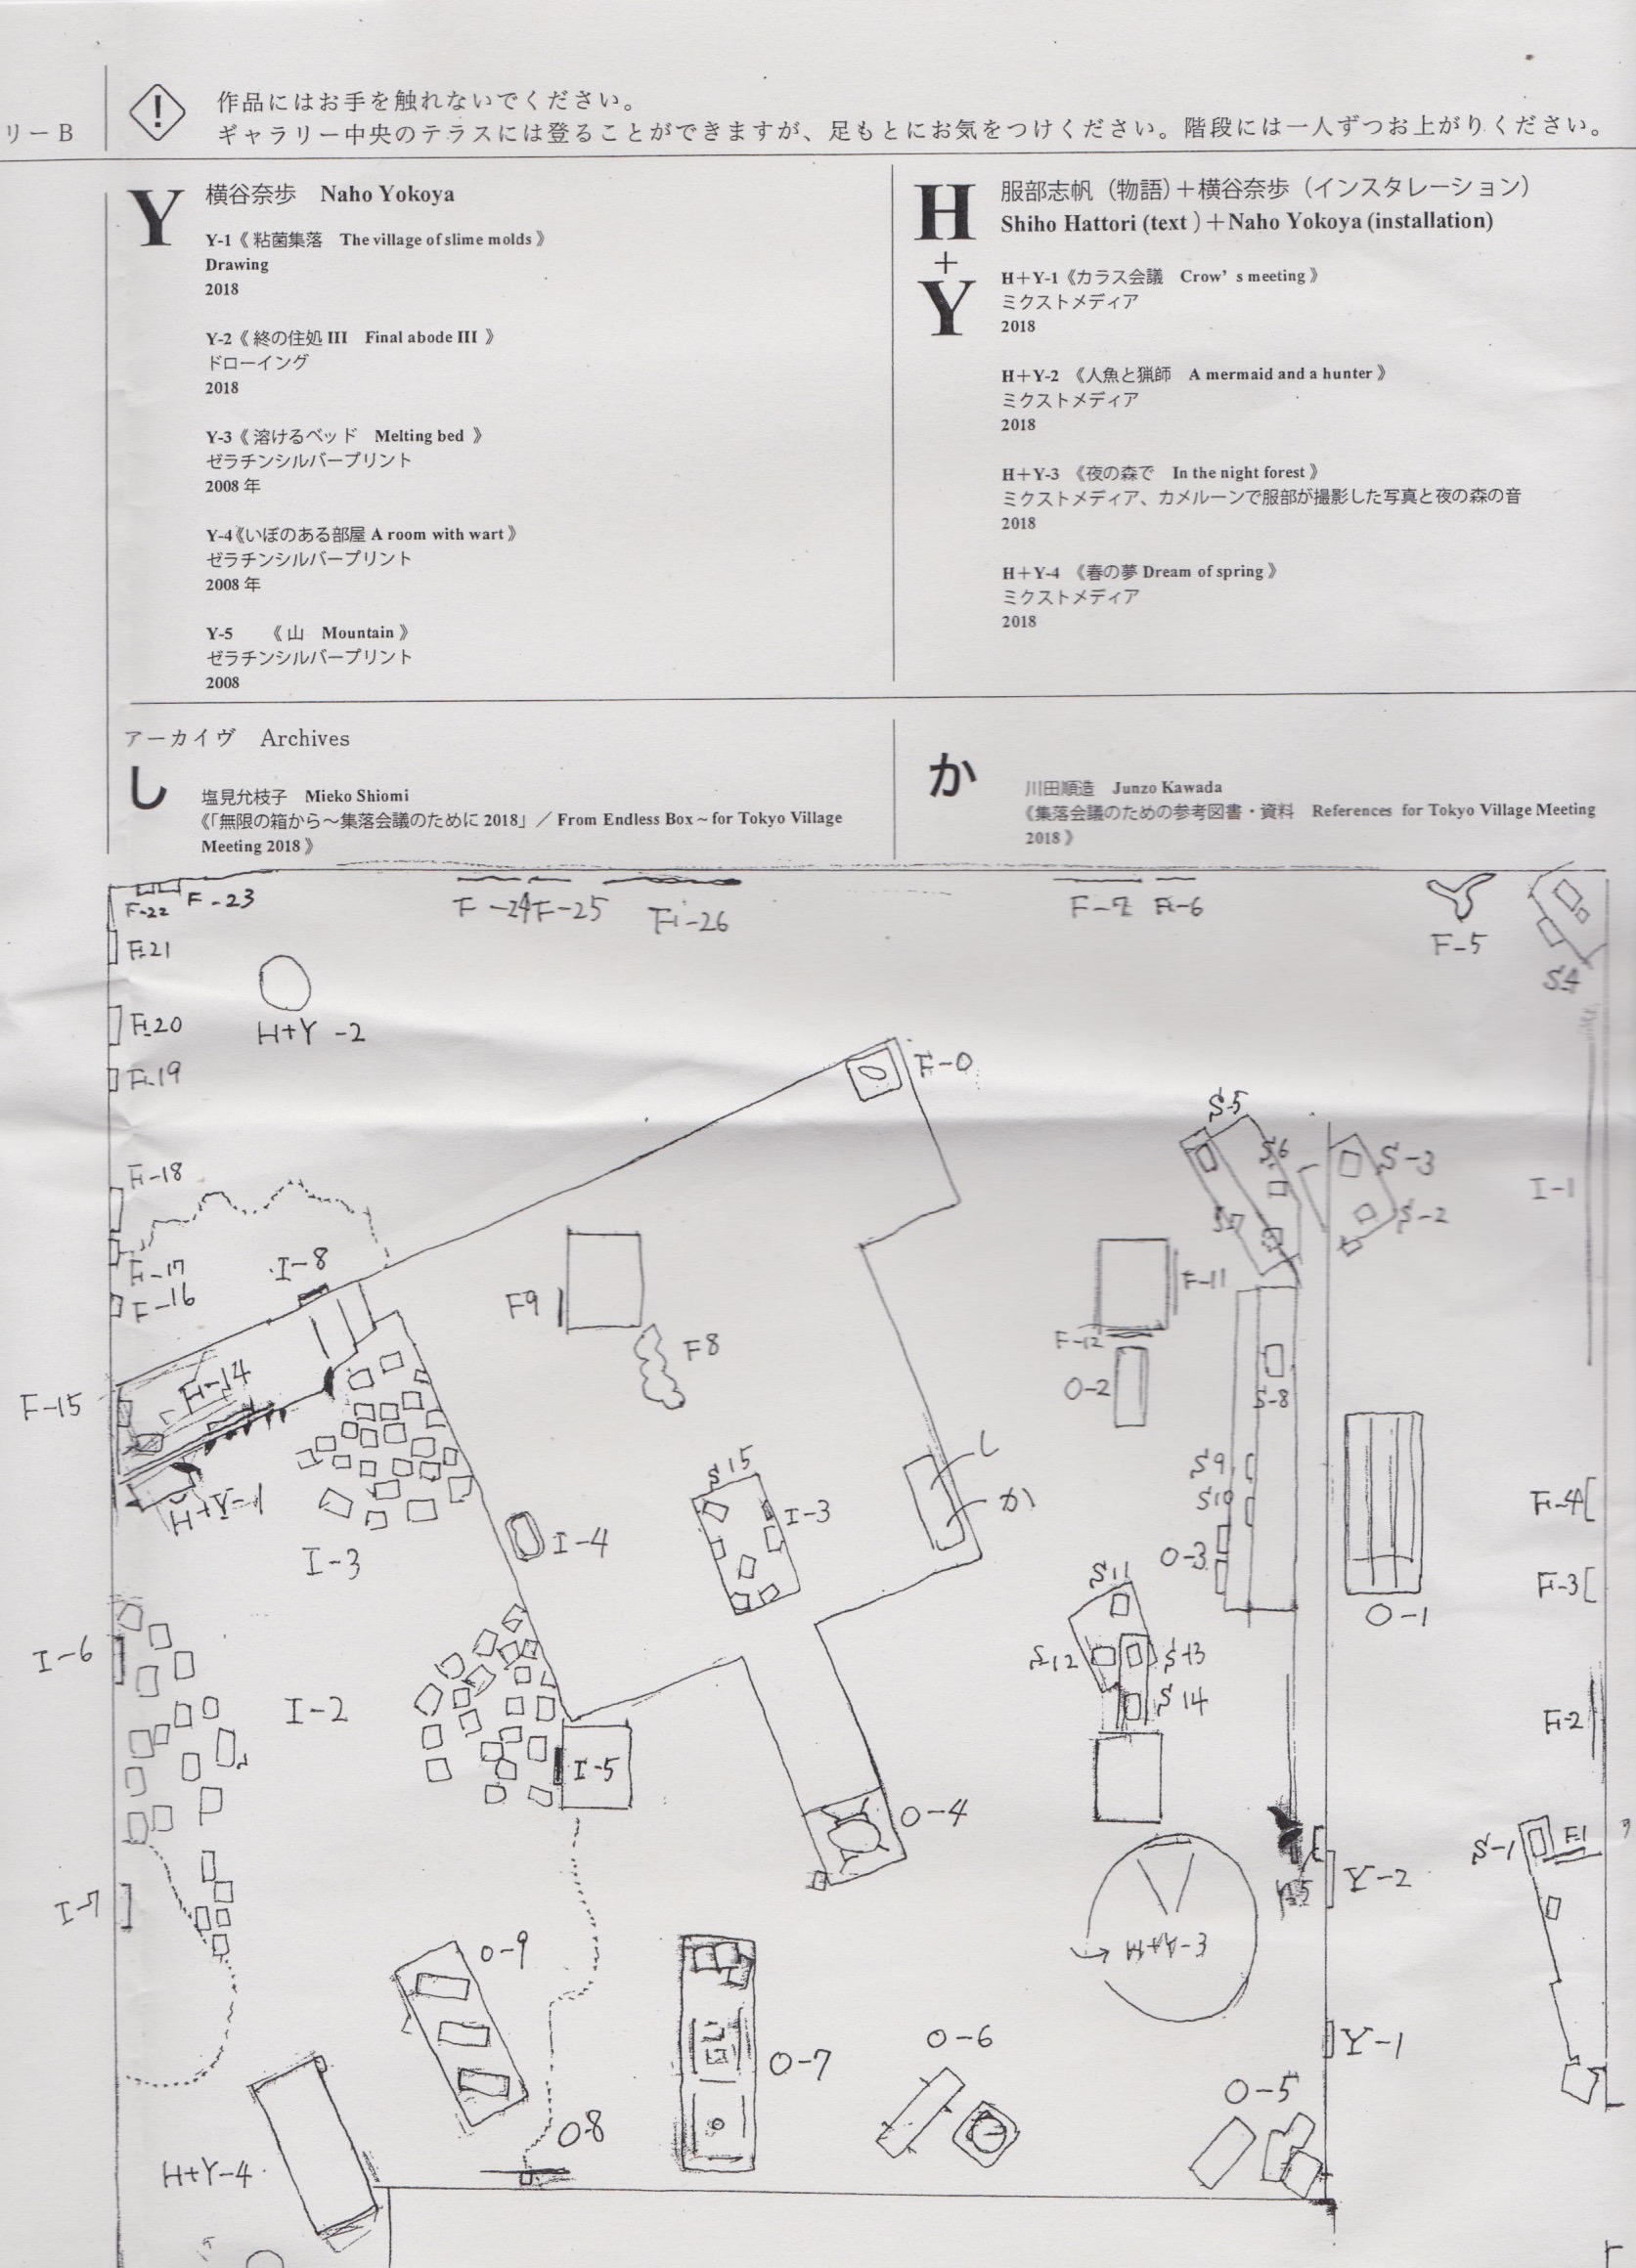 リーB
作品にはお手を触れないでください。
ギャラリー中央のテラスには登ることができますが、足もとにお気をつけください。階段には一人ずつお上がりください。
Y
横谷奈歩 Naho Yokoya
Y-1《 粘菌集落 The village of slime molds 》
Drawing
2018
Y-2《 終の住処 III Final abode III 》
ドローイング
2018
Y-3《 溶けるベッド Melting bed 》
ゼラチンシルバープリント
2008 年
Y-4《いぼのある部屋 A room with wart 》
ゼラチンシルバープリント
2008 年
Y-5 《 山 Mountain 》
ゼラチンシルバープリント
2008
H
+
Y
服部志帆（物語）＋横谷奈歩（インスタレーション）
Shiho Hattori (text )＋Naho Yokoya (installation)
H＋Y-1《カラス会議 Crow’s meeting 》
ミクストメディア
2018
H＋Y-2 《人魚と猟師 A mermaid and a hunter 》
ミクストメディア
2018
H＋Y-3 《夜の森で In the night forest 》
ミクストメディア、カメルーンで服部が撮影した写真と夜の森の音
2018
H＋Y-4 《春の夢 Dream of spring 》
ミクストメディア
2018
アーカイヴ Archives
し
塩見允枝子 Mieko Shiomi
《「無限の箱から～集落会議のために 2018」／ From Endless Box ~ for Tokyo Village
Meeting 2018 》
か
川田順造 Junzo Kawada
《集落会議のための参考図書・資料 References for Tokyo Village Meeting
2018 》
F-22
F-23
F-24
F-25
F-26
F-7
F-6
F-5
S4
F-21
F-20
F-19
H+Y-2
F-0
F-18
F-17
F-16
I-8
S-5
S6
S7
S-3
S-2
I-1
F9
F8
F-11
F-12
O-2
S-8
F-15
F-14
H+Y-1
I-3
I-4
S15
I-3
し
か
S9
S10
O-3
O-1
F-4
F-3
I-6
I-2
I-5
S11
S12
S13
S14
F-2
O-4
I-7
S-1
F-1
Y-2
H+Y-3
O-9
O-7
O-6
Y-1
O-5
O-8
H+Y-4